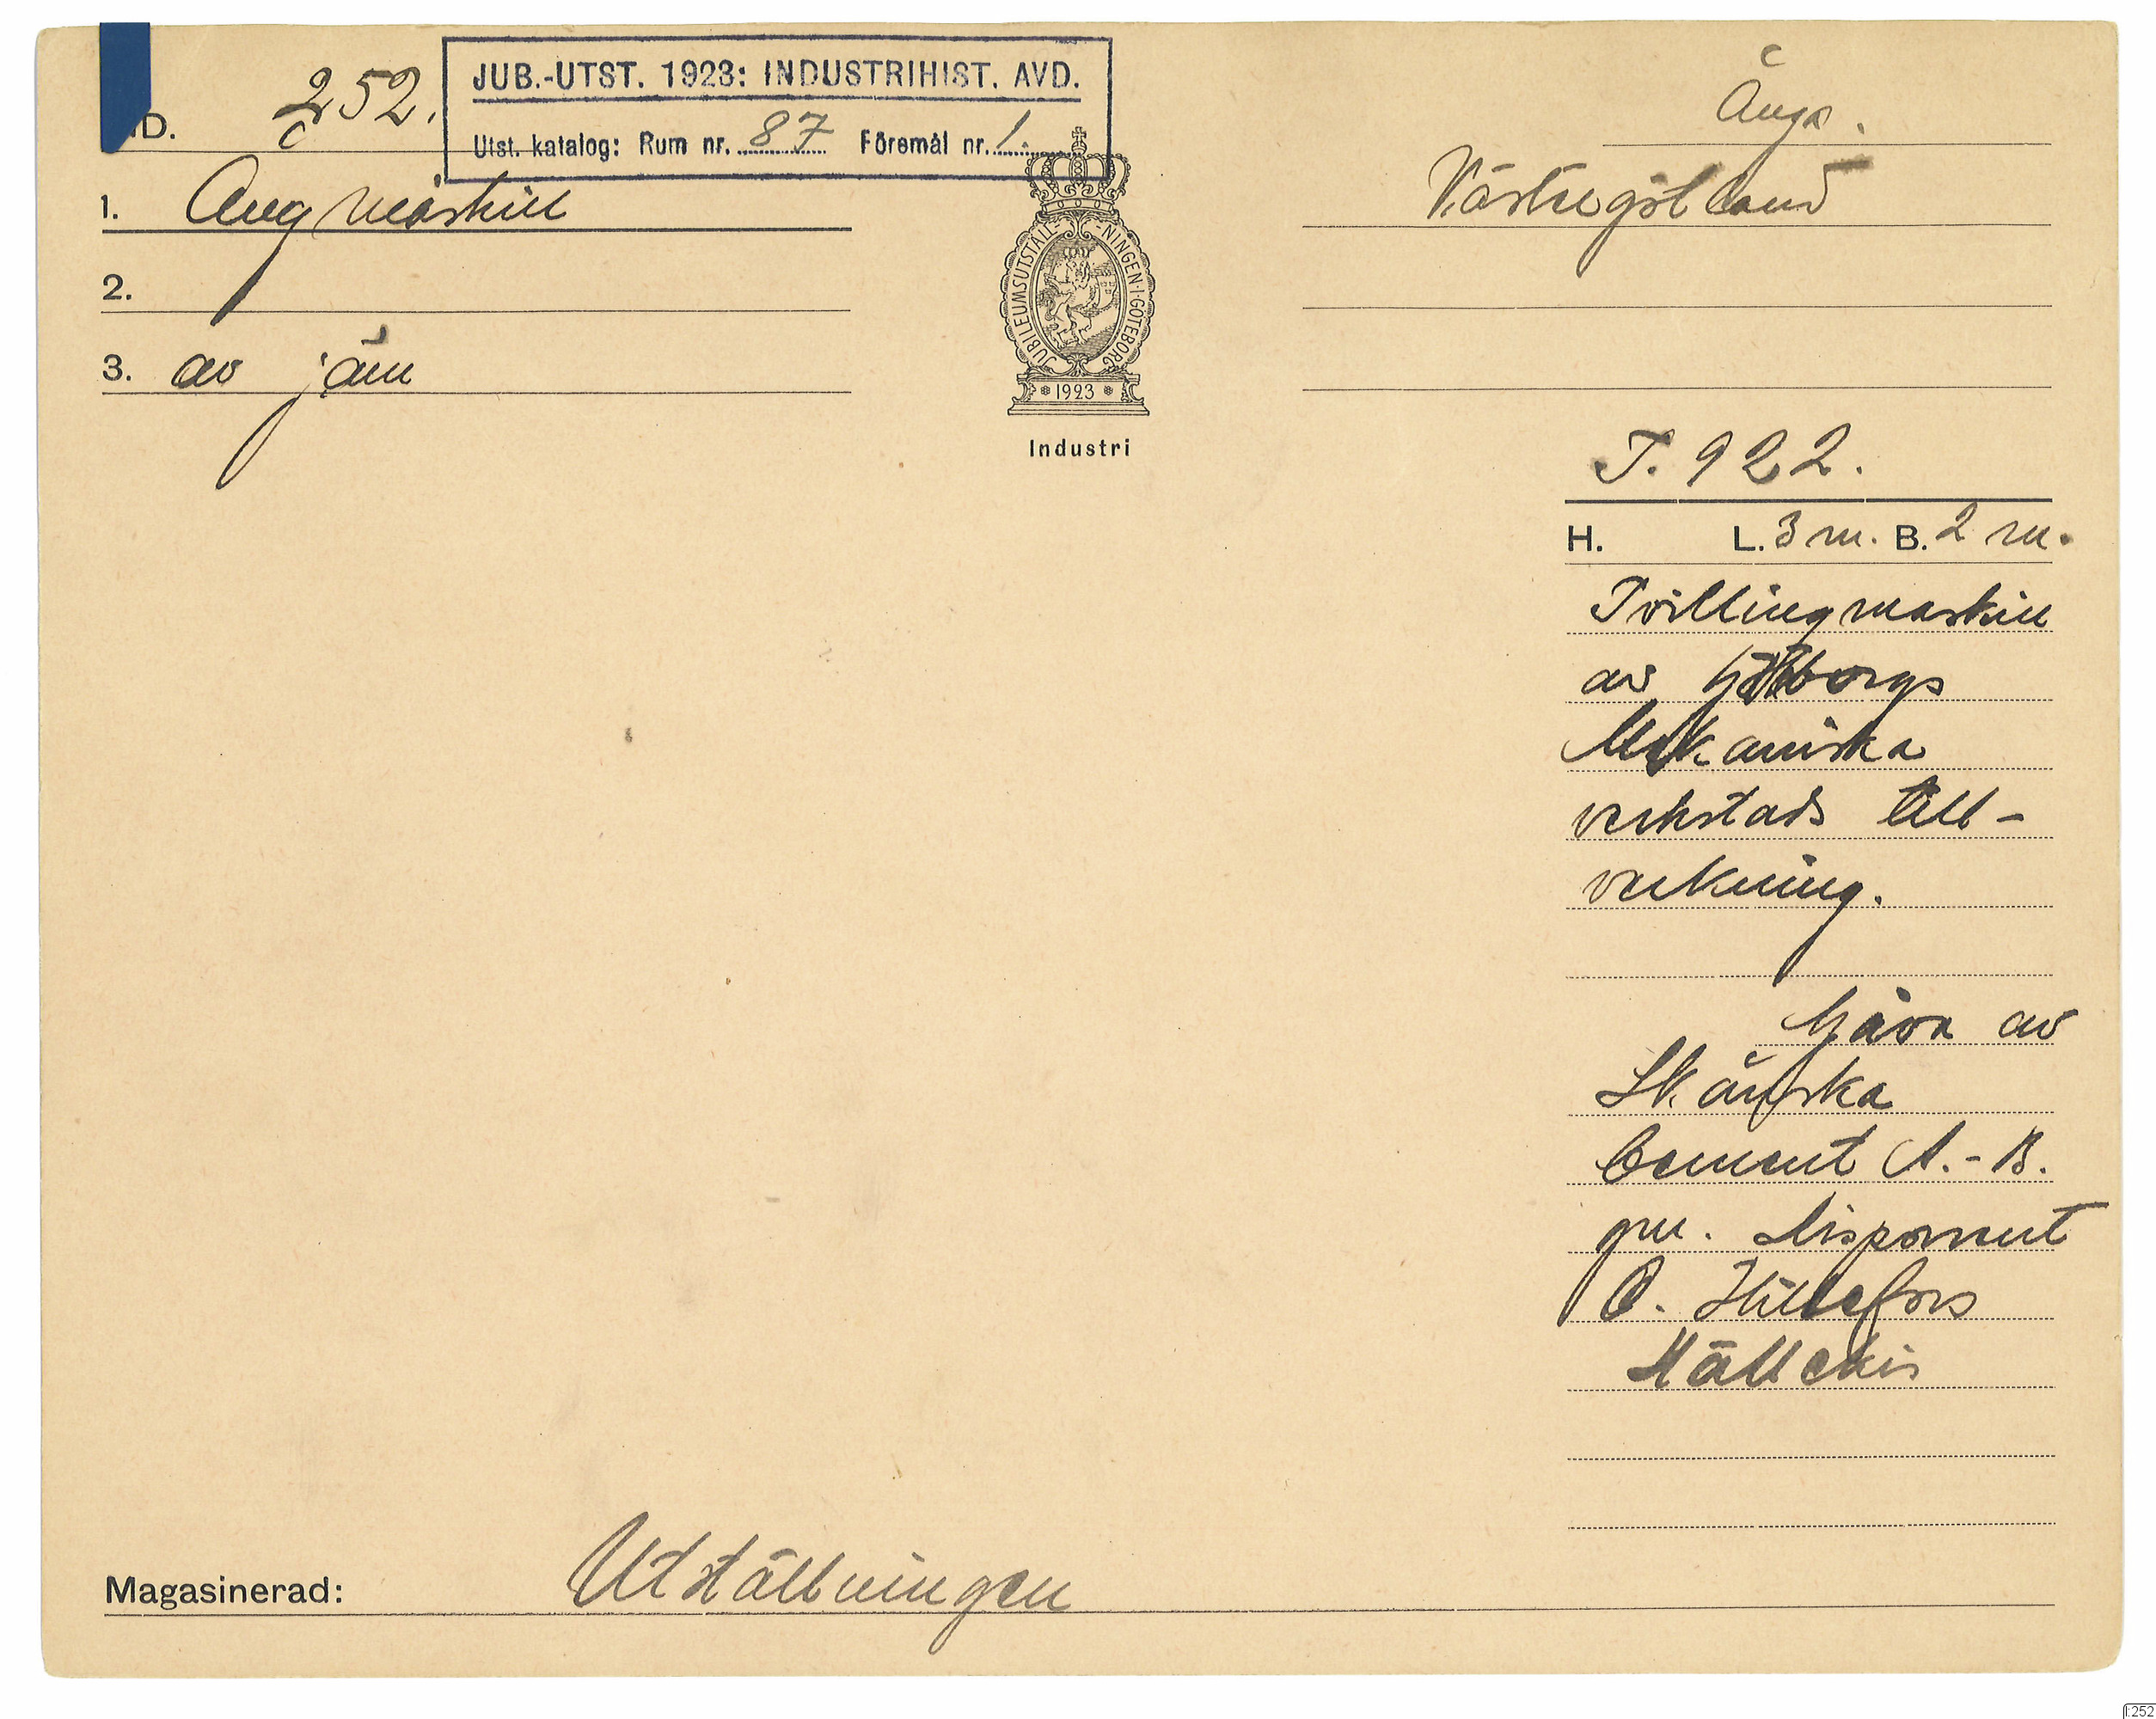 JUB.-UTST. 1923: INDUSTRIHIST. AVD.
Utst. katalog: Rum nr. 87 Föremål nr. 1.
D. 252.
Ånga.
1. Ångmaskin
Västergötland
2.
3. av järn
JUBILEUMSUTSTÄLL-NINGEN·I·GÖTEBORG
1923
Industri
T. 922.
H. L. 3 m. B. 2 m.
Tvillingmaskin
av Göteborgs
Mekaniska
verkstads till-
verkning.
Gåva av
Skånska
Cement A.-B.
gm. Disponent
O. Hällefors
Hällekis
Magasinerad: Utställningen
I:252